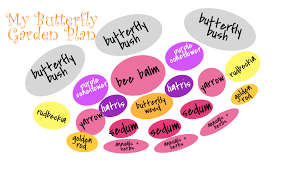 My Butterfly
Garden Plan
butterfly
bush
butterfly
bush
butterfly
bush
purple
coneflower
purple
coneflower
bee balm
rudbeckia
rudbeckia
liatris
liatris
yarrow
yarrow
butterfly
weed
golden
rod
golden
rod
sedum
sedum
sedum
sedum
annuals +
herbs
annuals +
herbs
annuals +
herbs